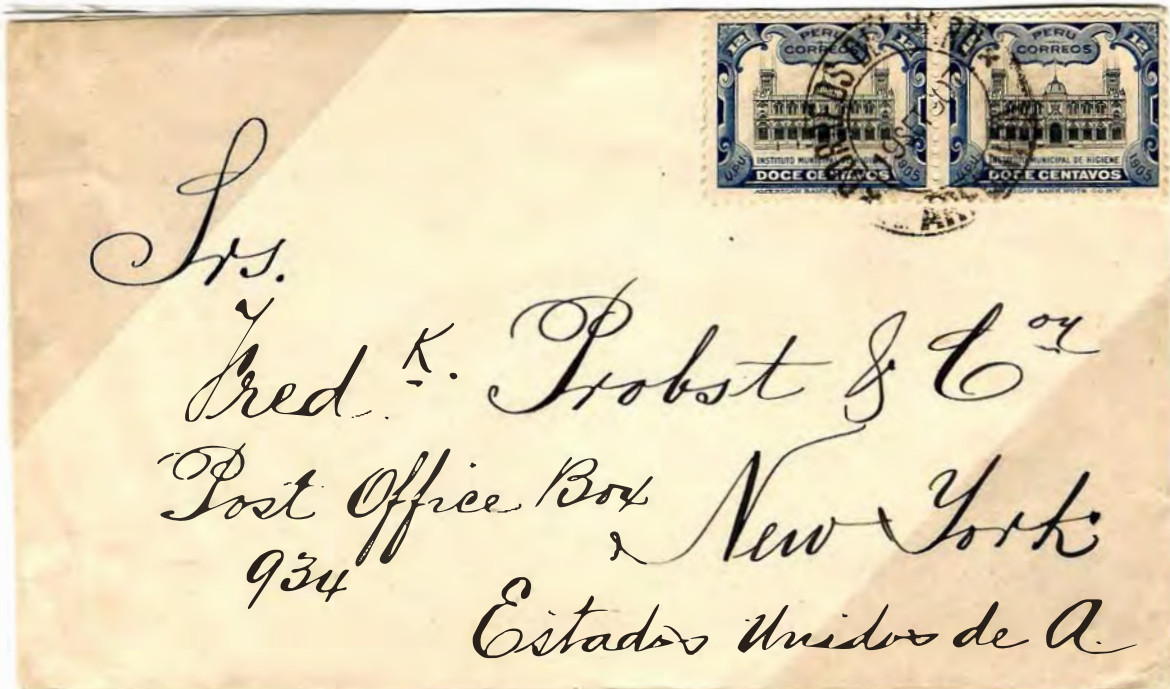 PERU
CORREOS
12 12
INSTITUTO MUNICIPAL DE HIGIENE
U.P.U. 1905
DOCE CENTAVOS
AMERICAN BANK NOTE CO. N.Y.
PERU
CORREOS
12 12
INSTITUTO MUNICIPAL DE HIGIENE
U.P.U. 1905
DOCE CENTAVOS
AMERICAN BANK NOTE CO. N.Y.
CORREOS DEL PERU
Srs.
Fred K. Probst & Coy
Post Office Box
934
New York
Estados Unidos de A.